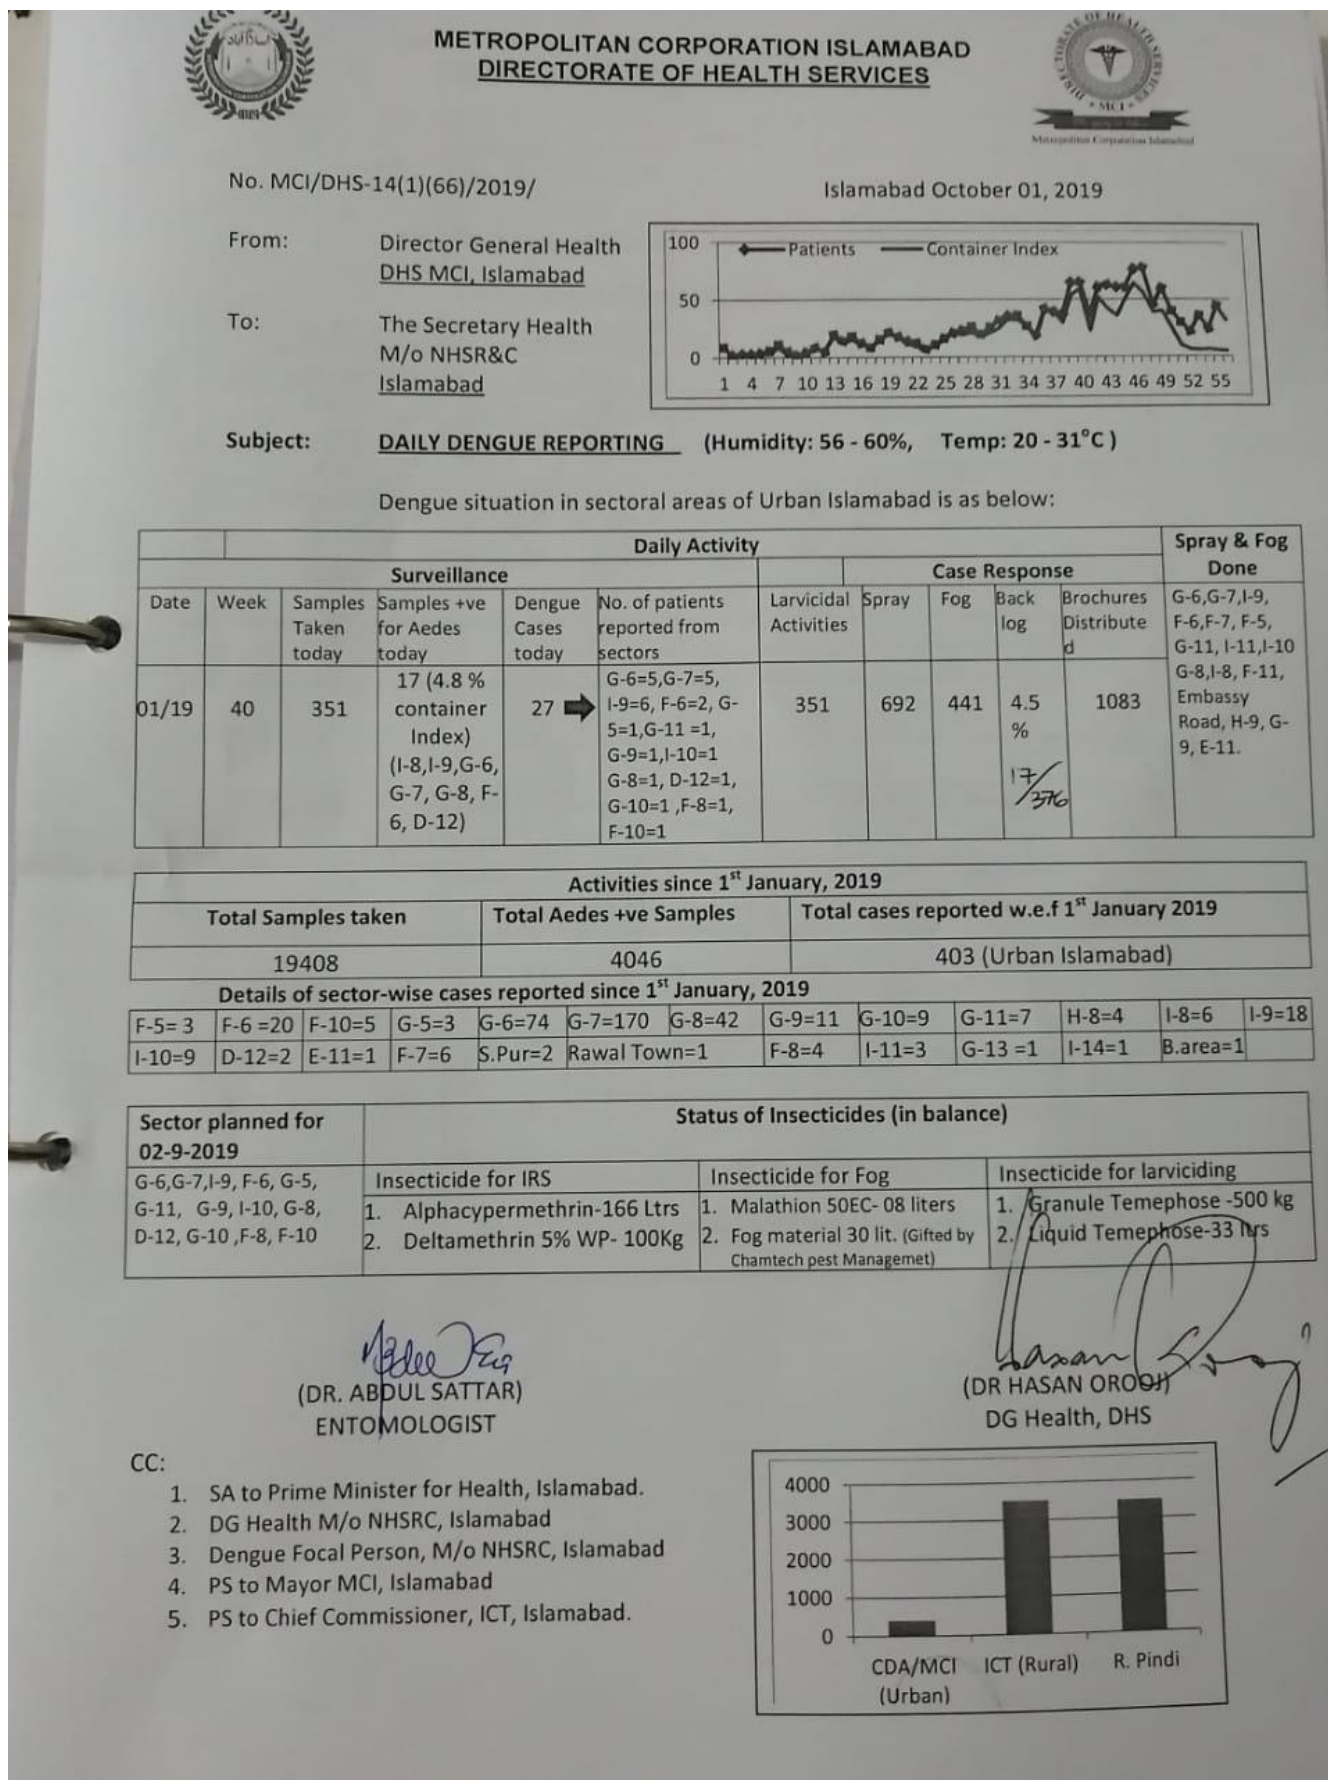 METROPOLITAN CORPORATION ISLAMABAD
DIRECTORATE OF HEALTH SERVICES
DIRECTORATE OF HEALTH SERVICES
MCI
Metropolitan Corporation Islamabad
No. MCI/DHS-14(1)(66)/2019/
Islamabad October 01, 2019
From:
Director General Health
DHS MCI, Islamabad
To:
The Secretary Health
M/o NHSR&C
Islamabad
100
50
0
Patients
Container Index
1 4 7 10 13 16 19 22 25 28 31 34 37 40 43 46 49 52 55
Subject: DAILY DENGUE REPORTING (Humidity: 56 - 60%, Temp: 20 - 31°C )
Dengue situation in sectoral areas of Urban Islamabad is as below:
Daily Activity
Spray & Fog
Done
Surveillance
Case Response
Date
Week
Samples
Taken
today
Samples +ve
for Aedes
today
Dengue
Cases
today
No. of patients
reported from
sectors
Larvicidal
Activities
Spray
Fog
Back
log
Brochures
Distribute
d
G-6,G-7,I-9,
F-6,F-7, F-5,
G-11, I-11,I-10
G-8,I-8, F-11,
Embassy
Road, H-9, G-
9, E-11.
01/19
40
351
17 (4.8 %
container
Index)
(I-8,I-9,G-6,
G-7, G-8, F-
6, D-12)
27
G-6=5,G-7=5,
I-9=6, F-6=2, G-
5=1,G-11 =1,
G-9=1,I-10=1
G-8=1, D-12=1,
G-10=1 ,F-8=1,
F-10=1
351
692
441
4.5
%
17/376
1083
Activities since 1st January, 2019
Total Samples taken
Total Aedes +ve Samples
Total cases reported w.e.f 1st January 2019
19408
4046
403 (Urban Islamabad)
Details of sector-wise cases reported since 1st January, 2019
F-5= 3 F-6 =20 F-10=5 G-5=3 G-6=74 G-7=170 G-8=42 G-9=11 G-10=9 G-11=7 H-8=4 I-8=6 I-9=18
I-10=9 D-12=2 E-11=1 F-7=6 S.Pur=2 Rawal Town=1 F-8=4 I-11=3 G-13 =1 I-14=1 B.area=1
Sector planned for
02-9-2019
Status of Insecticides (in balance)
G-6,G-7,I-9, F-6, G-5,
G-11, G-9, I-10, G-8,
D-12, G-10 ,F-8, F-10
Insecticide for IRS
1. Alphacypermethrin-166 Ltrs
2. Deltamethrin 5% WP- 100Kg
Insecticide for Fog
1. Malathion 50EC- 08 liters
2. Fog material 30 lit. (Gifted by
Chamtech pest Managemet)
Insecticide for larviciding
1. Granule Temephose -500 kg
2. Liquid Temephose-33 ltrs
(DR. ABDUL SATTAR)
ENTOMOLOGIST
Hasan Orooj
(DR HASAN OROOJ)
DG Health, DHS
CC:
1. SA to Prime Minister for Health, Islamabad.
2. DG Health M/o NHSRC, Islamabad
3. Dengue Focal Person, M/o NHSRC, Islamabad
4. PS to Mayor MCI, Islamabad
5. PS to Chief Commissioner, ICT, Islamabad.
4000
3000
2000
1000
0
CDA/MCI
(Urban)
ICT (Rural)
R. Pindi